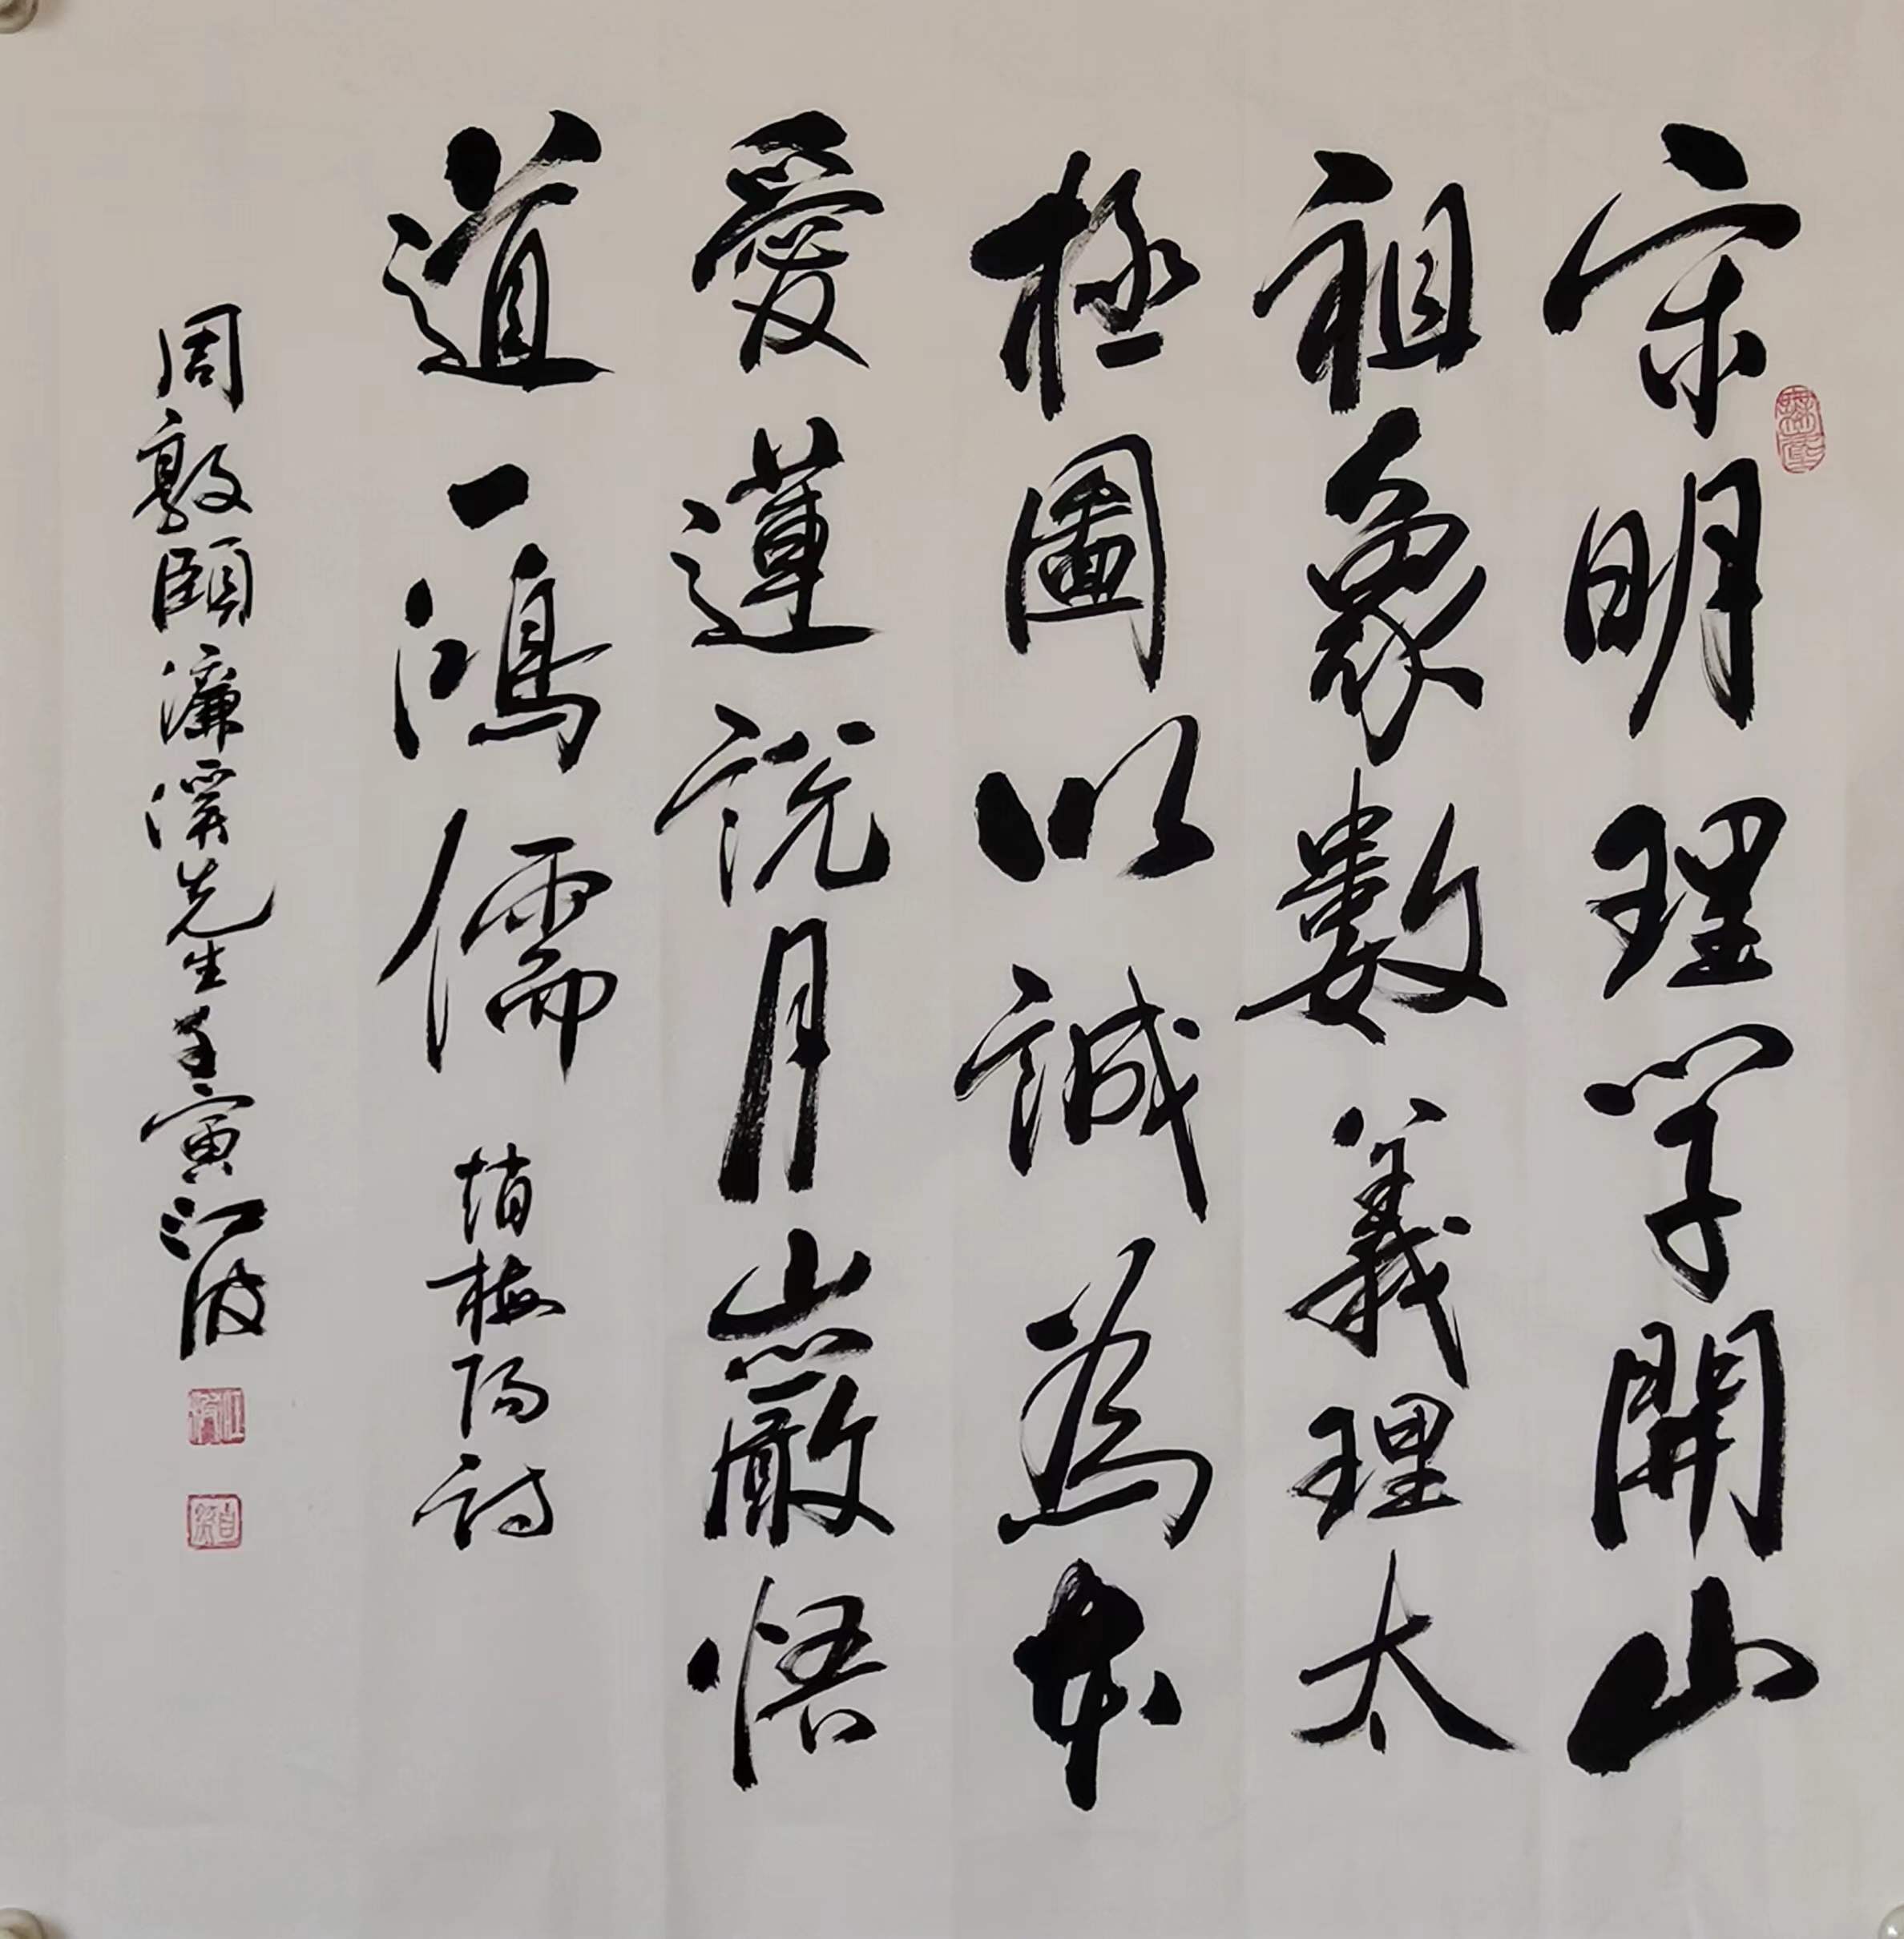 宋明理学開山
祖象數義理太
極圖以誠為本
愛蓮說月巖悟
道一鴻儒 趙梅陽詩
周敦頤濂溪先生壬寅江波
江波